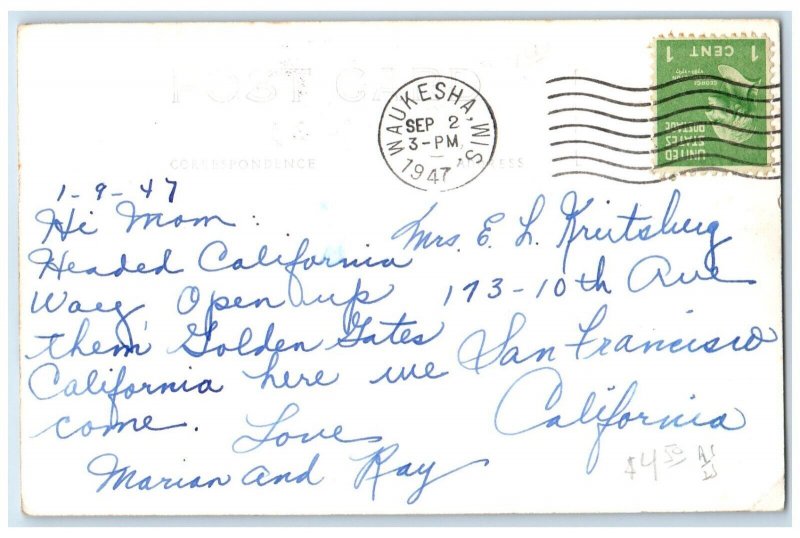 POST CARD
CORRESPONDENCE
ADDRESS
WAUKESHA, WIS
SEP 2
3-PM
1947
1 CENT 1
UNITED
STATES
POSTAGE
1-9-47
Hi Mom:
Headed California
Way, Open up
them Golden Gates
California here we
come.
Love
Marian and Ray
Mrs. E. L. Kreitsburg
173-10th Ave
San Francisco
California
$4.50